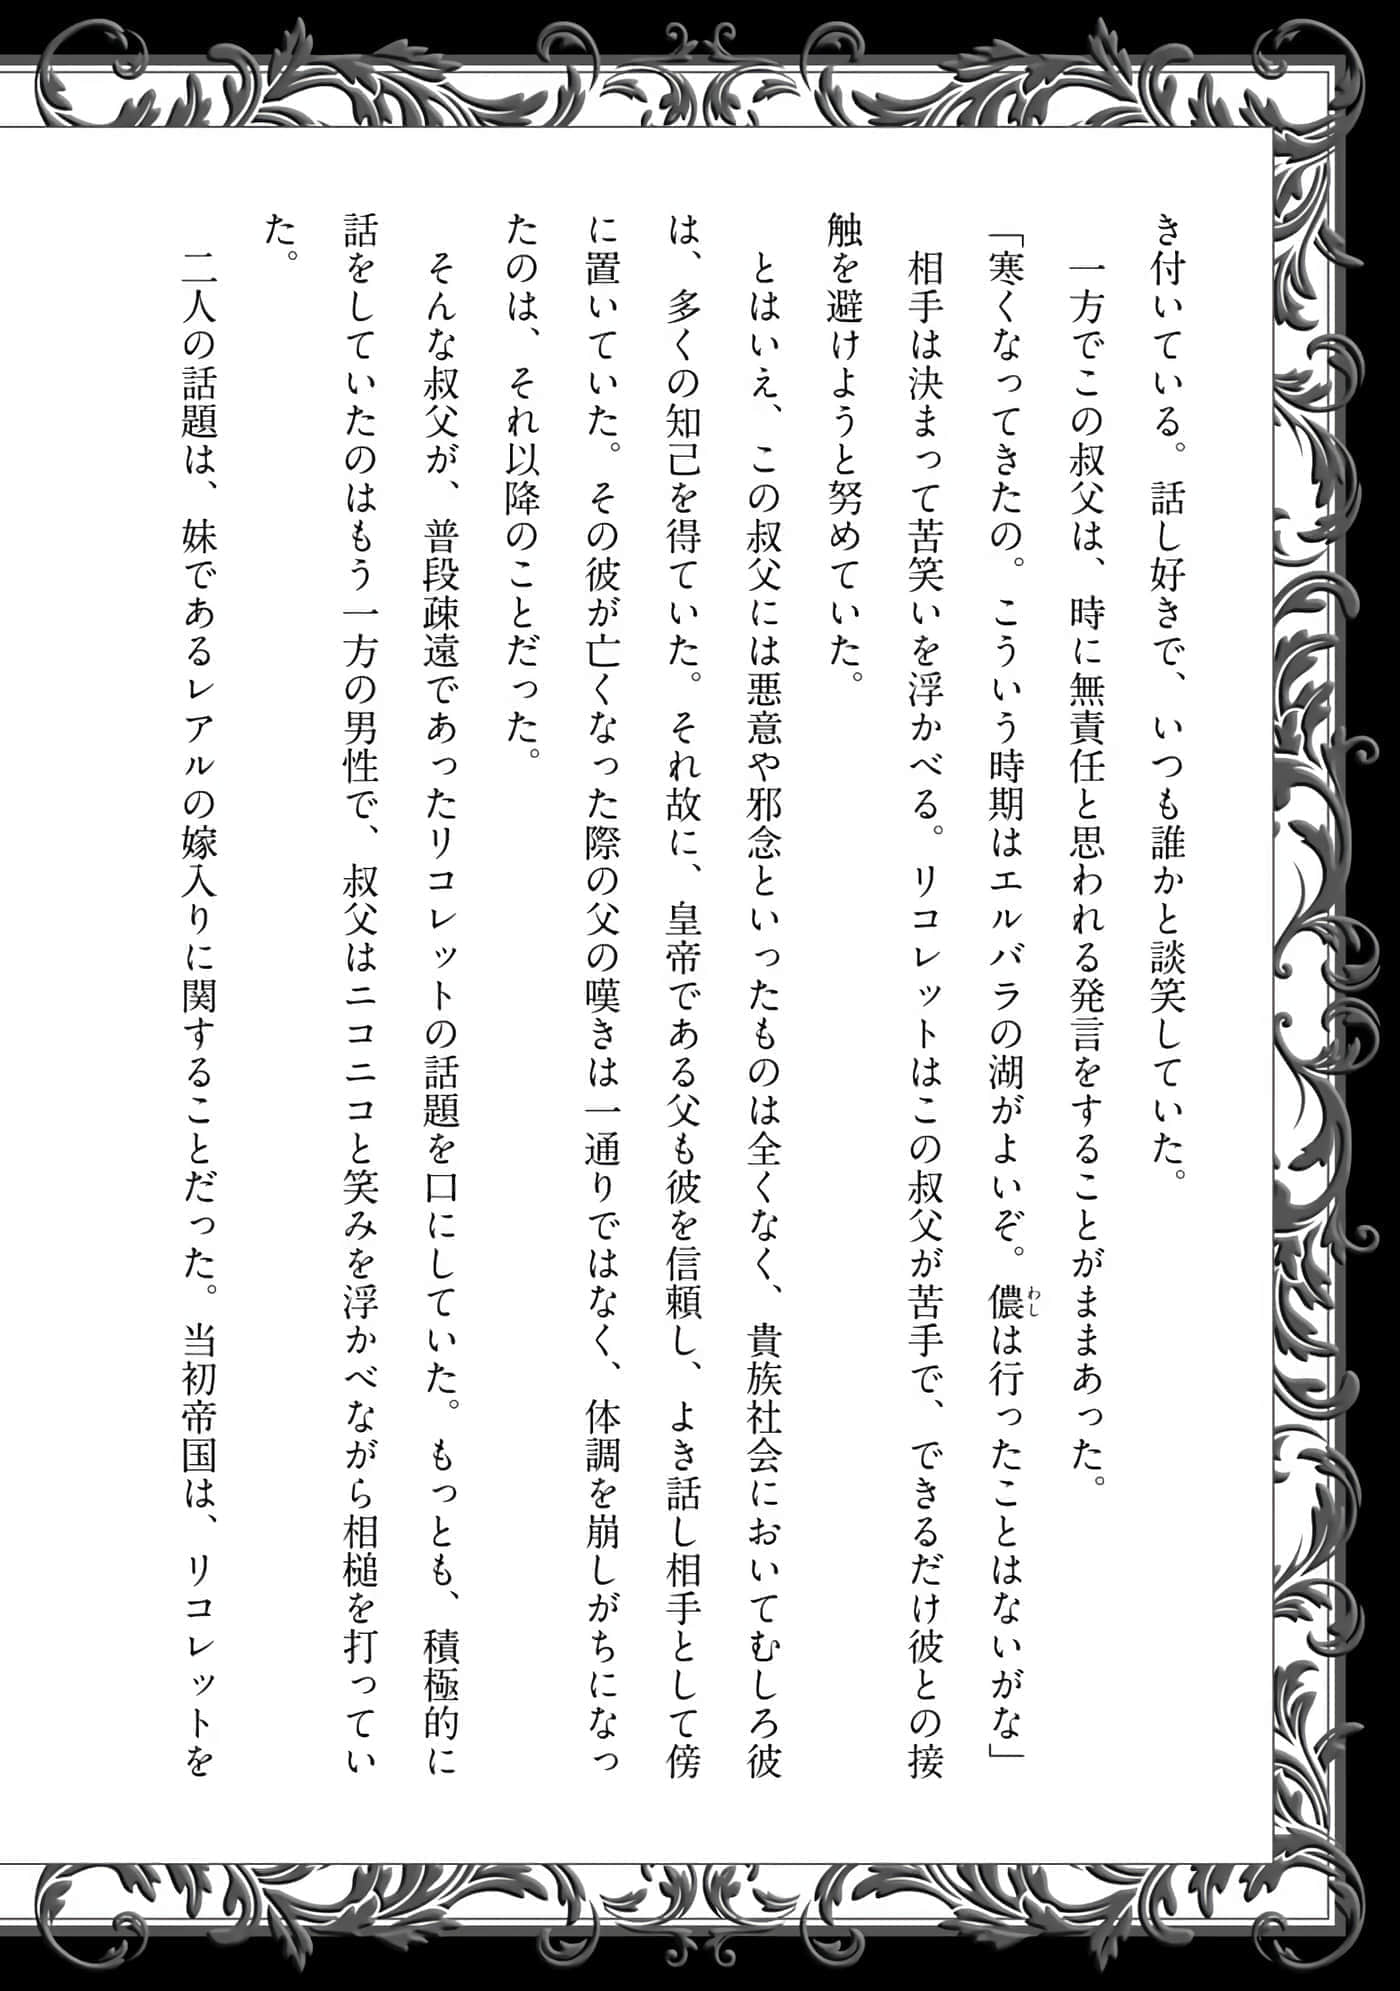 き付いている。話し好きで、いつも誰かと談笑していた。
一方でこの叔父は、時に無責任と思われる発言をすることがままあった。
「寒くなってきたの。こういう時期はエルバラの湖がよいぞ。儂は行ったことはないがな」
わし
相手は決まって苦笑いを浮かべる。リコレットはこの叔父が苦手で、できるだけ彼との接
触を避けようと努めていた。
とはいえ、この叔父には悪意や邪念といったものは全くなく、貴族社会においてむしろ彼
は、多くの知己を得ていた。それ故に、皇帝である父も彼を信頼し、よき話し相手として傍
に置いていた。その彼が亡くなった際の父の嘆きは一通りではなく、体調を崩しがちになっ
たのは、それ以降のことだった。
そんな叔父が、普段疎遠であったリコレットの話題を口にしていた。もっとも、積極的に
話をしていたのはもう一方の男性で、叔父はニコニコと笑みを浮かべながら相槌を打ってい
た。
二人の話題は、妹であるレアルの嫁入りに関することだった。当初帝国は、リコレットを